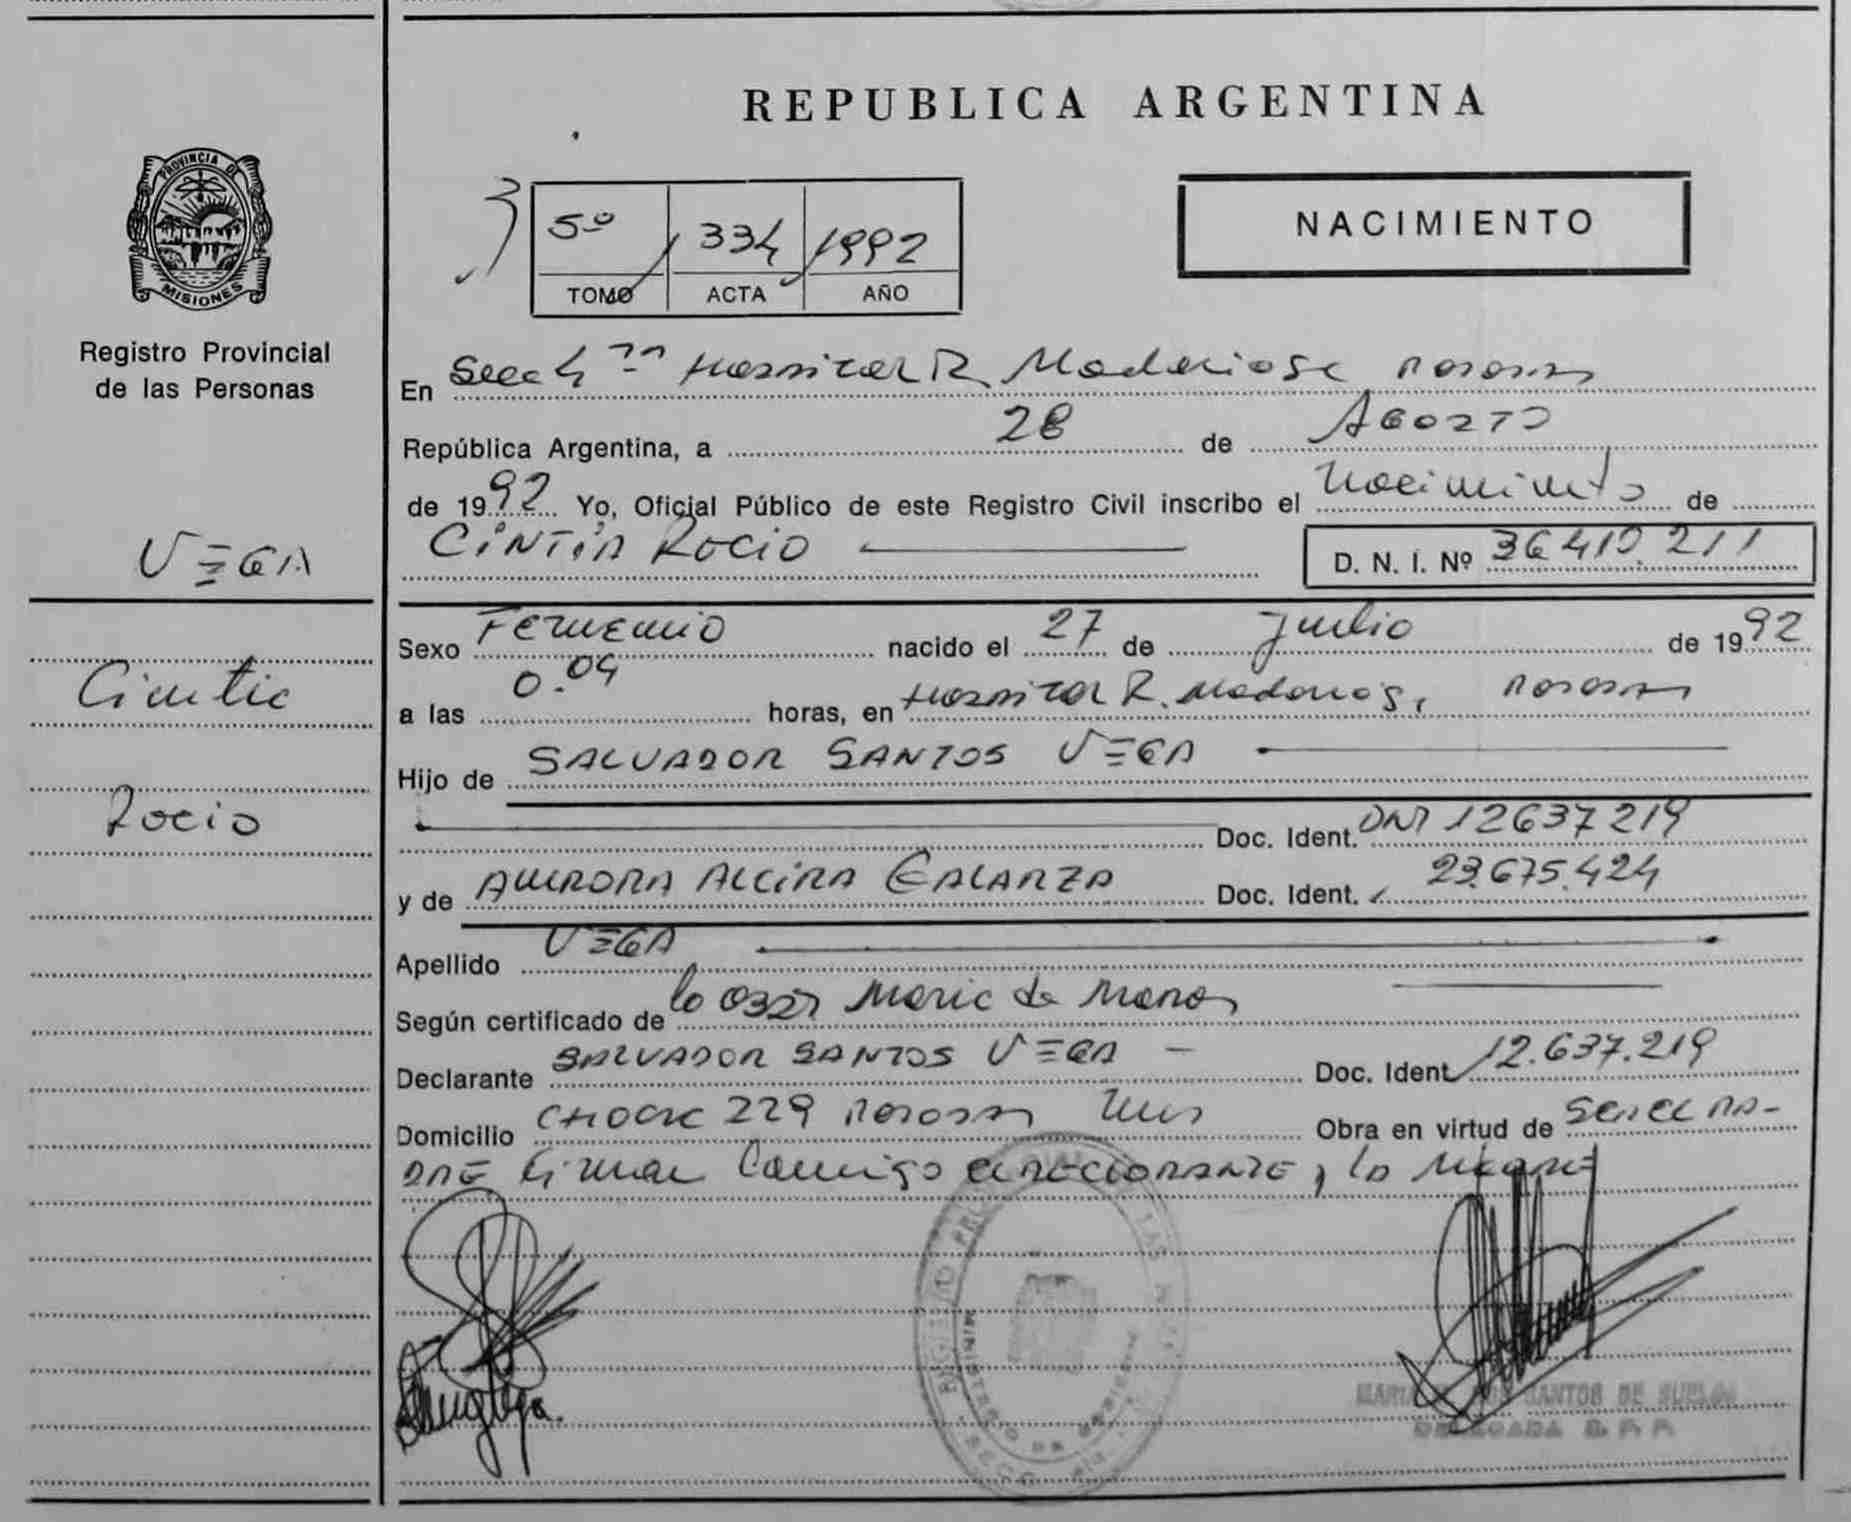 REPUBLICA ARGENTINA
PROVINCIA DE
MISIONES
Registro Provincial
de las Personas
5º 334 1992
TOMO ACTA AÑO
NACIMIENTO
En Secc Hospital R. Posadas
República Argentina, a 28 de Agosto
de 1992 Yo, Oficial Público de este Registro Civil inscribo el Nacimiento de
VEGA
CINTIA ROCIO D. N. I. Nº 36.410.211
Cintia
Rocio
Sexo Femenino nacido el 27 de Julio de 1992
a las 0.04 horas, en Hospital R. Posadas
Hijo de SALVADOR SANTOS VEGA
Doc. Ident. DNI 12637219
y de AURORA ALCIRA GALARZA Doc. Ident. 23.675.424
Apellido VEGA
Según certificado de la Maria de
Declarante SALVADOR SANTOS VEGA Doc. Ident 12.637.219
Domicilio 229 Posadas Mnes Obra en virtud de ser el PA-
DRE Firman Conmigo el DECLARANTE, la MADRE
REGISTRO PROVINCIAL DE LAS
MINISTERIO DE GOBIERNO
SANTOS DE
DELEGADA R.P.P.